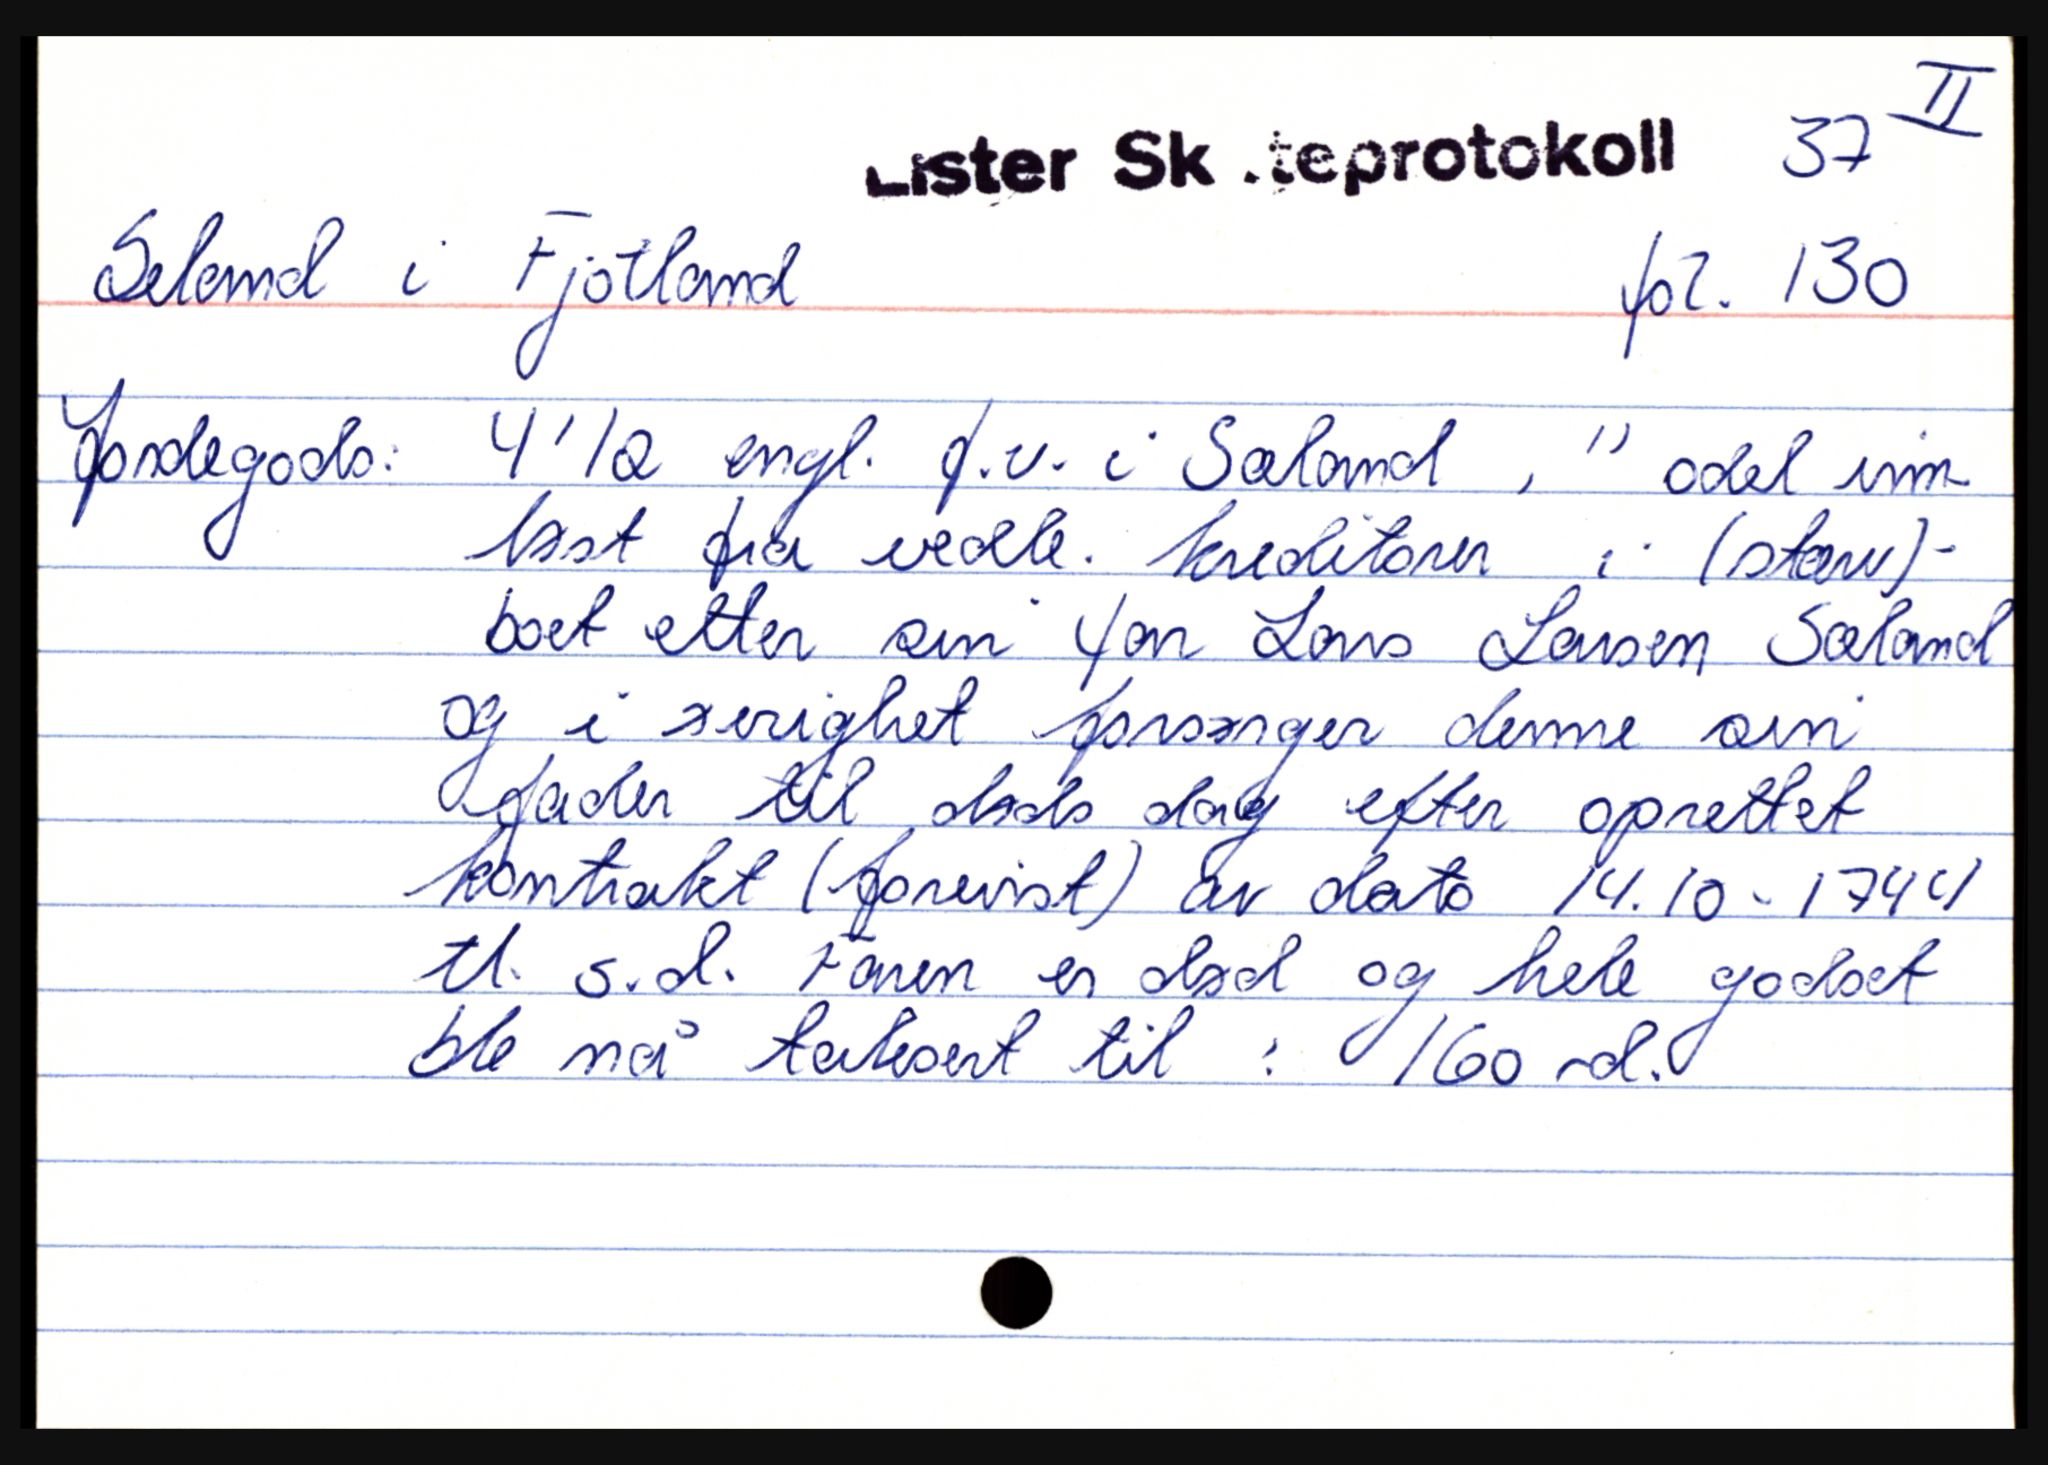 Lister Skifteprotokoll 37 II
Seland i Fjotland fol. 130
Jordegods: 4 1/2 engl. f.v. i Sæland, " odel inn-
løst fra vedk. kreditorer i (sterv)-
boet etter sin far Lars Larsen Sæland
og i øvrighet forsørger denne sin
fader til døds dag efter oprettet
kontrakt (forevist) av dato 14.10-1744
tl. s.d. Faren er død og hele godset
ble nå taksert til : 160 rd.